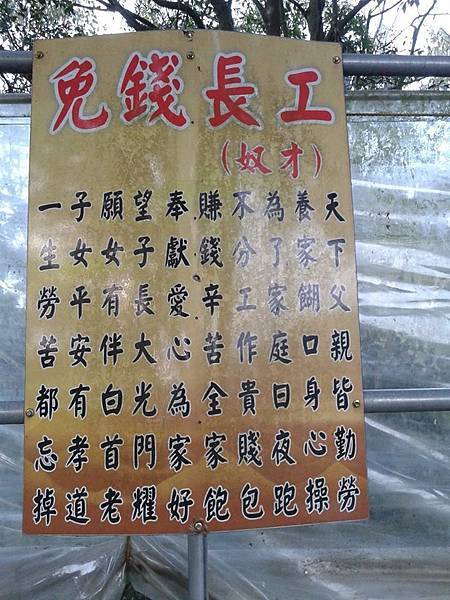 免錢長工
(奴才)
天下父親皆勤勞
養家餬口身心操
為了家庭日夜跑
不分工作貴賤包
賺錢辛苦全家飽
奉獻愛心為家好
望子長大光門耀
願女有伴白首老
子女平安有孝道
一生勞苦都忘掉